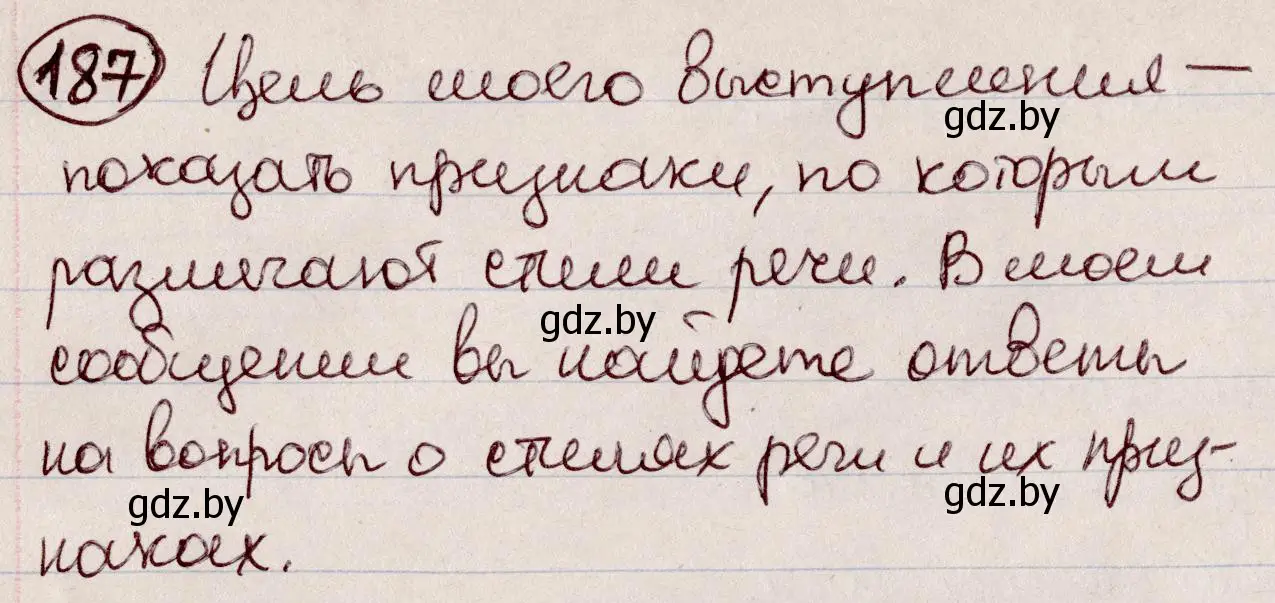 187 Цель моего выступления —
gdz.by
показать признаки, по которым
различают стили речи. В моем
gdz.by
сообщении вы найдете ответы
на вопросы о стилях речи и их приз-
gdz.by
gdz.by
наках.